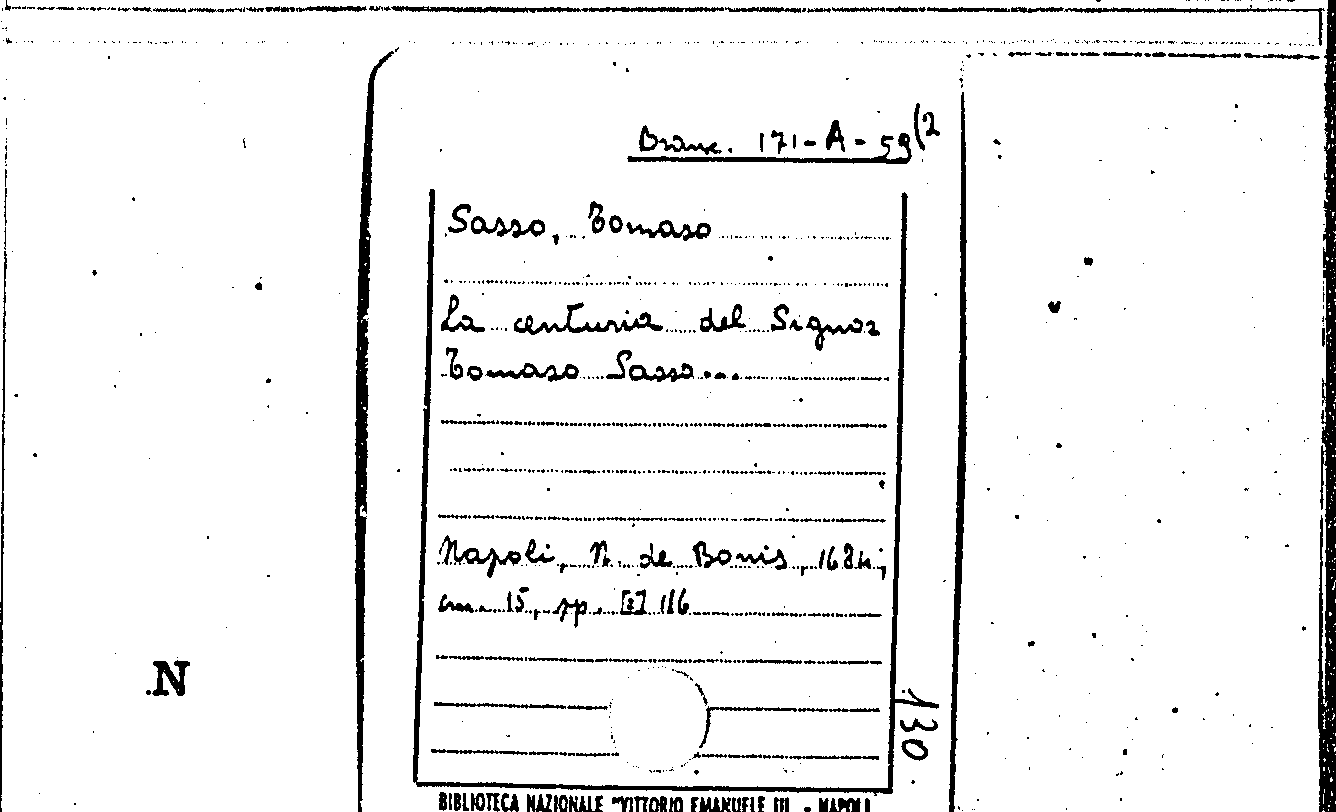 Branc. 171-A-59(2
Sasso, Tomaso
La centuria del Signor
Tomaso Sasso...
Napoli, N. de Bonis, 1684;
cm. 15, pp. [8] 116
130
N
BIBLIOTECA NAZIONALE "VITTORIO EMANUELE III - NAPOLI